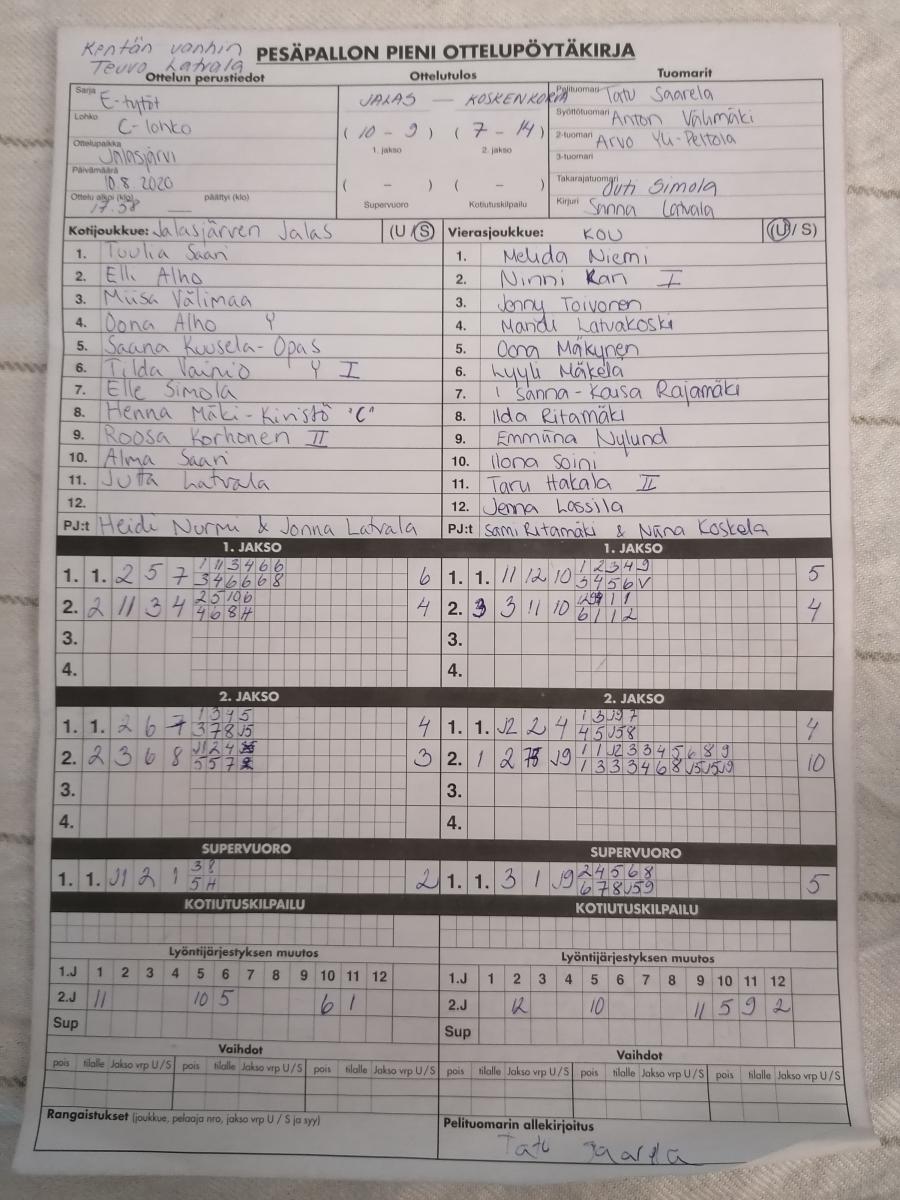 Kentän vanhin
Teuvo Latvala
PESÄPALLON PIENI OTTELUPÖYTÄKIRJA
Ottelun perustiedot
Ottelutulos
Tuomarit
Sarja E-tytöt
Lohko C-lohko
Ottelupaikka Jalasjärvi
Päivämäärä 10.8.2020
Ottelu alkoi (klo) 17.38 päättyi (klo) —
JALAS — KOSKENKORVA
( 10 - 9 ) ( 7 - 14 )
1. jakso 2. jakso
( - ) ( - )
Supervuoro Kotiutuskilpailu
Pelituomari Tatu Saarela
Syöttötuomari Anton Välimäki
2-tuomari Arvo Yli-Peltola
3-tuomari
Takarajatuomari Outi Simola
Kirjuri Sanna Latvala
Kotijoukkue: Jalasjärven Jalas (U / S)
1. Tuulia Saari
2. Elli Alho
3. Miisa Välimaa
4. Oona Alho Y
5. Saana Kuusela-Opas
6. Tilda Vainio Y I
7. Elle Simola
8. Henna Mäki-Kiristö "C"
9. Roosa Korhonen II
10. Alma Saari
11. Jutta Latvala
12.
PJ:t Heidi Nurmi & Jonna Latvala
Vierasjoukkue: KOU (U / S)
1. Melida Niemi
2. Ninni Kari I
3. Jenny Toivonen
4. Mandi Latvakoski
5. Oona Mäkynen
6. Lyyli Mäkelä
7. Sanna-Kaisa Rajamäki
8. Iida Ritamäki
9. Emmiina Nylund
10. Ilona Soini
11. Taru Hakala II
12. Jenna Lassila
PJ:t Sami Ritamäki & Niina Koskela
1. JAKSO
1. 1. 2 5 7 1 11 3 4 6 6 6
3 4 6 6 6 8
2. 2 11 3 4 2 5 10 6 4
4 6 8 H
3.
4.
1. JAKSO
1. 1. 11 12 10 1 2 3 4 9 5
3 4 5 6 V
2. 3 3 11 10 4
6 1 1 2
3.
4.
2. JAKSO
1. 1. 2 6 7 1 3 4 5 4
3 7 8 J5
2. 2 3 6 8 J1 2 4 3
5 5 7
3.
4.
2. JAKSO
1. 1. J2 2 4 1 3 J9 7 4
4 5 J5 8
2. 1 2 J9 1 1 J2 3 3 4 5 6 8 9 10
1 3 3 3 4 6 8 J5 J5 J9
3.
4.
SUPERVUORO
1. 1. J1 2 1 3 8 2
5 H
SUPERVUORO
1. 1. 3 1 J9 2 4 5 6 8 5
6 7 8 J5 9
KOTIUTUSKILPAILU
KOTIUTUSKILPAILU
Lyöntijärjestyksen muutos
1.J 1 2 3 4 5 6 7 8 9 10 11 12
2.J 11 10 5 6 1
Sup
Lyöntijärjestyksen muutos
1.J 1 2 3 4 5 6 7 8 9 10 11 12
2.J 12 10 11 5 9 2
Sup
Vaihdot
pois tilalle Jakso vrp U / S pois tilalle Jakso vrp U / S pois tilalle Jakso vrp U / S
Vaihdot
pois tilalle Jakso vrp U / S pois tilalle Jakso vrp U / S pois tilalle Jakso vrp U / S
Rangaistukset (joukkue, pelaaja nro, jakso vrp U / S ja syy)
Pelituomarin allekirjoitus
Tatu Saarela